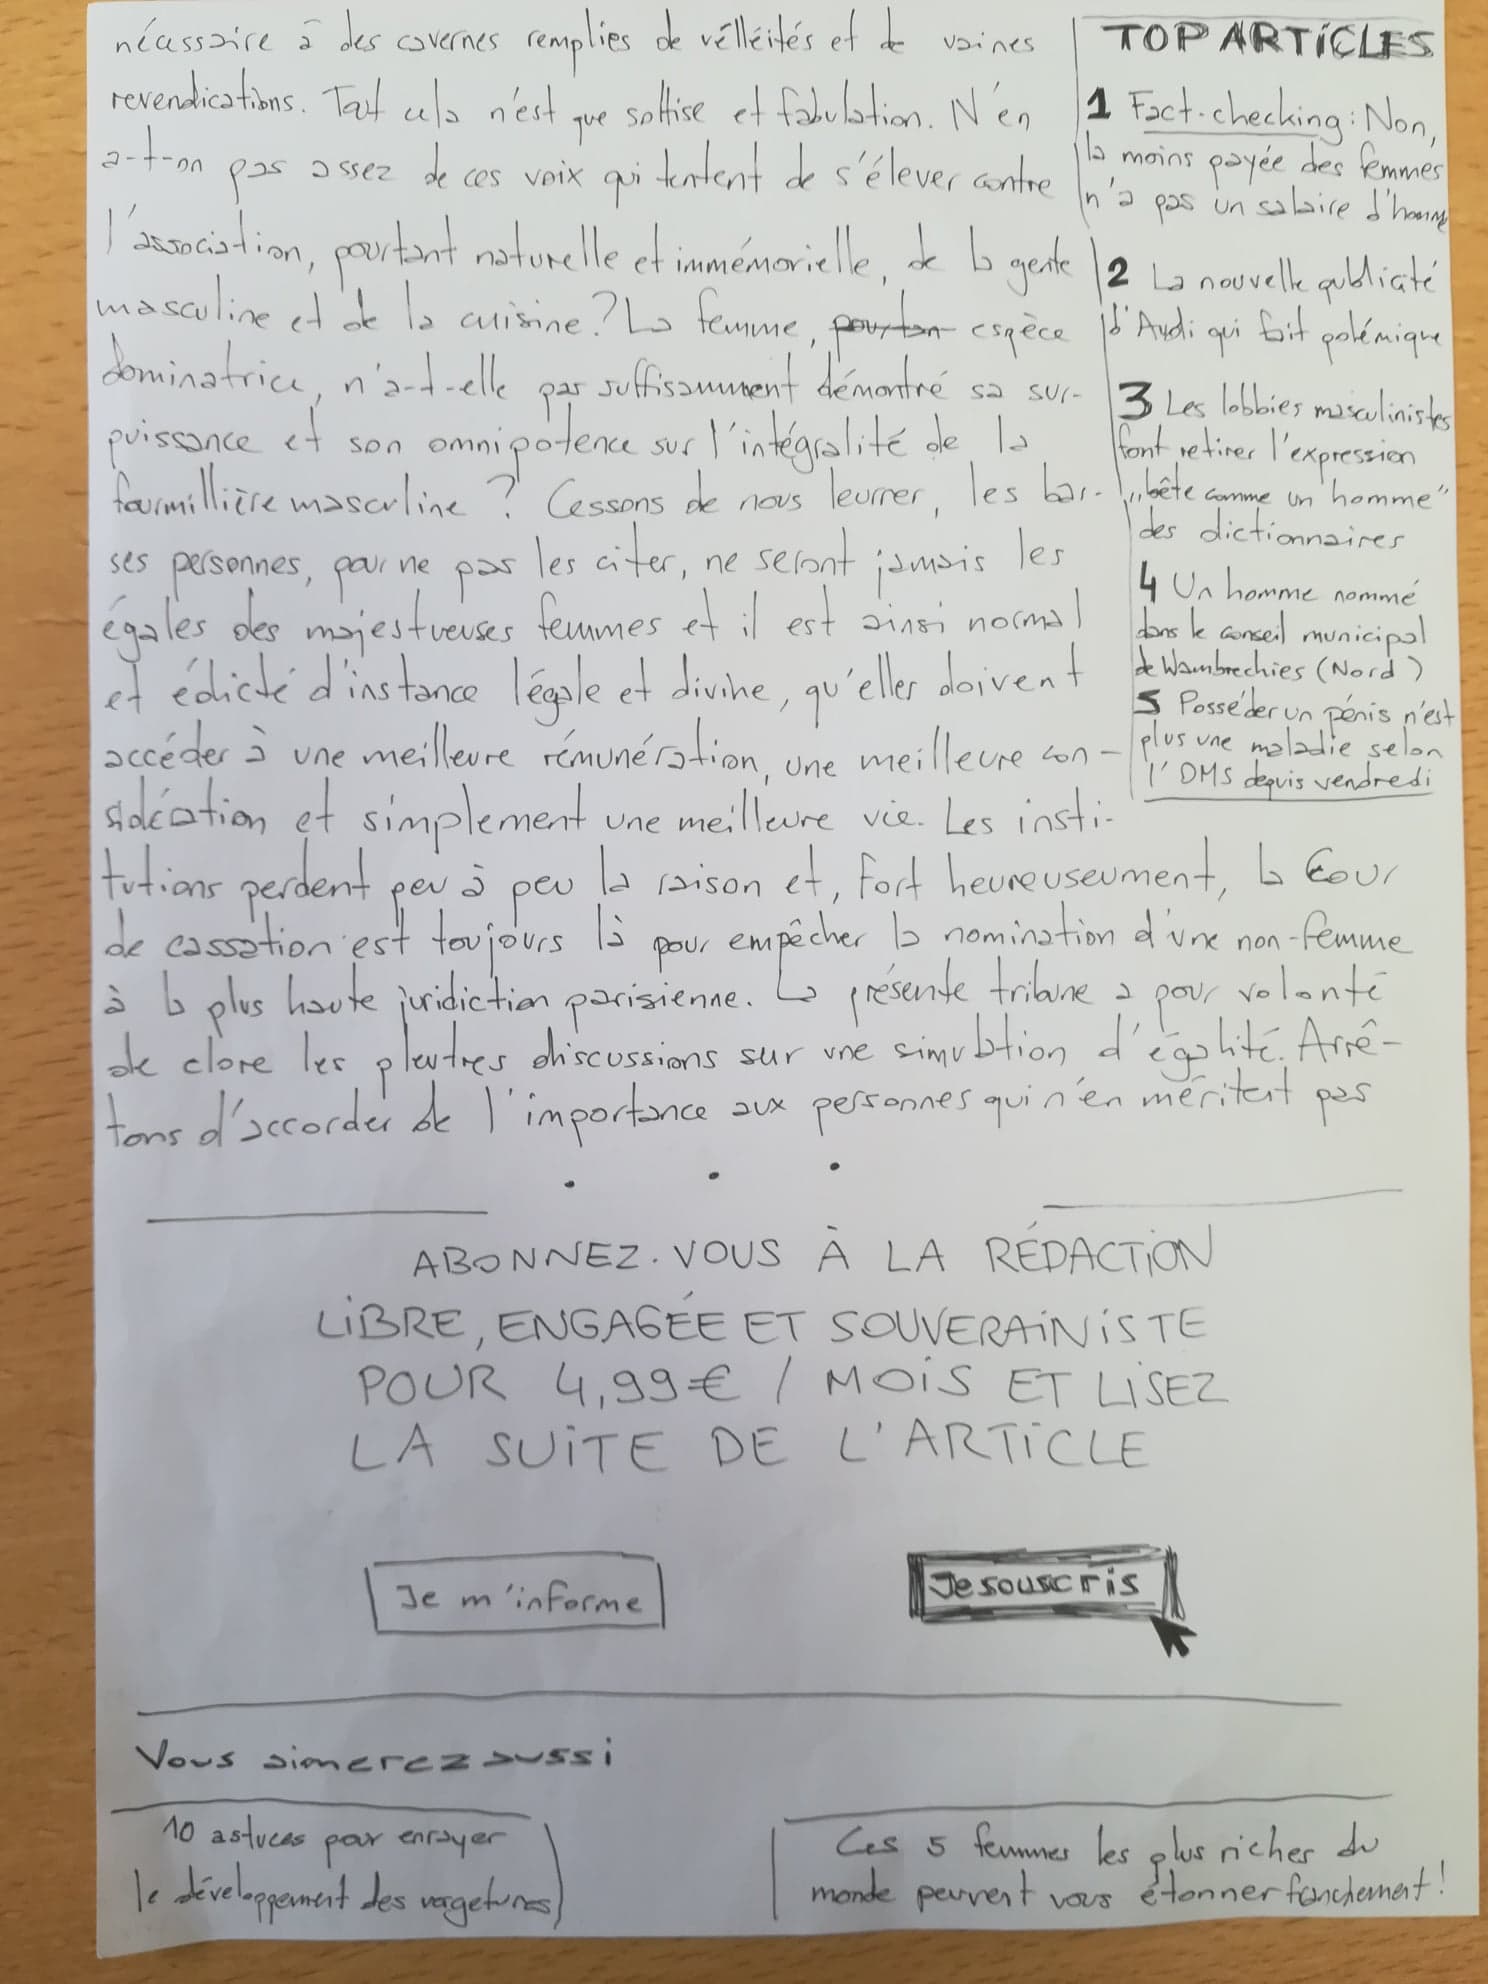 nécessaire à des cavernes remplies de vélléités et de vaines
revendications. Tout cela n'est que sottise et fabulation. N'en
a-t-on pas assez de ces voix qui tentent de s'élever contre
l'association, pourtant naturelle et immémorielle, de la gente
masculine et de la cuisine? La femme, pourtan espèce
dominatrice, n'a-t-elle pas suffisamment démontré sa sur-
puissance et son omnipotence sur l'intégralité de la
fourmillière masculine ? Cessons de nous leurrer, les bas-
ses personnes, pour ne pas les citer, ne seront jamais les
égales des majestueuses femmes et il est ainsi normal
et édicté d'instance légale et divine, qu'elles doivent
accéder à une meilleure rémunération, une meilleure con-
sidération et simplement une meilleure vie. Les insti-
tutions perdent peu à peu la raison et, fort heureusement, la Cour
de cassation est toujours là pour empêcher la nomination d'une non-femme
à la plus haute juridiction parisienne. La présente tribune a pour volonté
de clore les pleutres discussions sur une simulation d'égalité. Arrê-
tons d'accorder de l'importance aux personnes qui n'en méritent pas
. . .
TOP ARTICLES
1 Fact-checking : Non,
la moins payée des femmes
n'a pas un salaire d'homme
2 La nouvelle publicité
d'Audi qui fait polémique
3 Les lobbies masculinistes
font retirer l'expression
"bête comme un homme"
des dictionnaires
4 Un homme nommé
dans le conseil municipal
de Wambrechies (Nord)
5 Posséder un pénis n'est
plus une maladie selon
l'OMS depuis vendredi
ABONNEZ-VOUS À LA RÉDACTION
LIBRE, ENGAGÉE ET SOUVERAINISTE
POUR 4,99€ / MOIS ET LISEZ
LA SUITE DE L'ARTICLE
Je m'informe
Je souscris
Vous aimerez aussi
10 astuces pour enrayer
le développement des vergetures
Ces 5 femmes les plus riches du
monde peuvent vous étonner franchement!